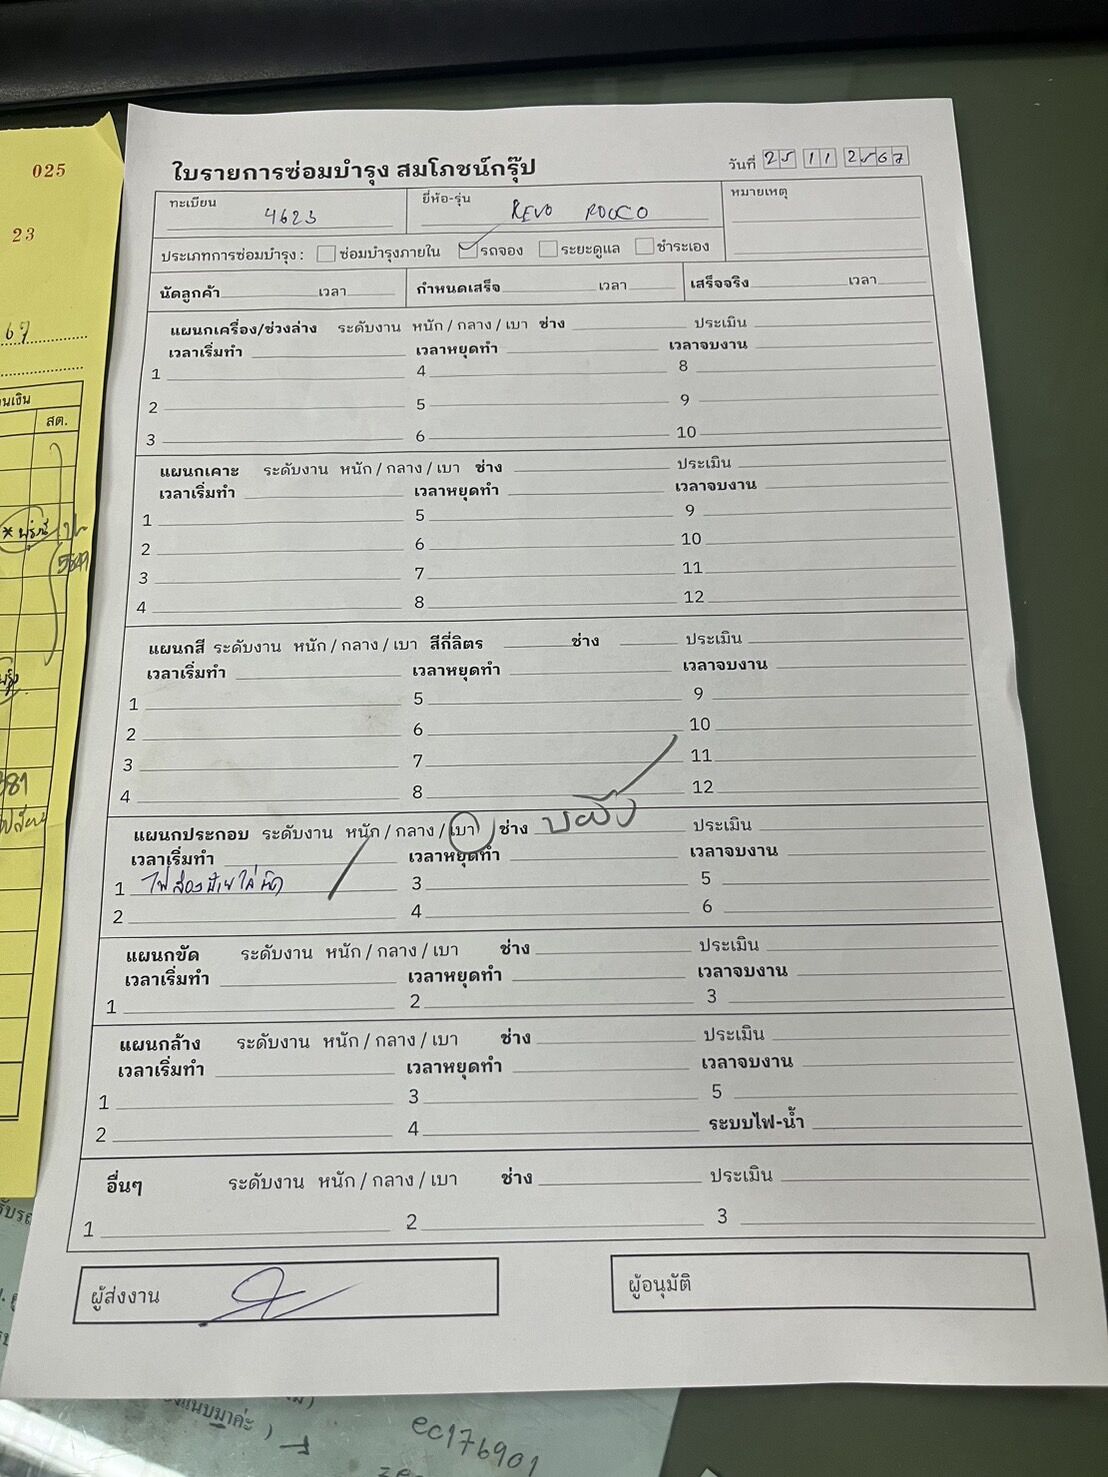 ใบรายการซ่อมบำรุง สมโภชน์กรุ๊ป วันที่ 25 11 2567
ทะเบียน 4623 ยี่ห้อ-รุ่น REVO ROCCO หมายเหตุ
ประเภทการซ่อมบำรุง : ซ่อมบำรุงภายใน รถจอง ระยะดูแล ชำระเอง
นัดลูกค้า เวลา กำหนดเสร็จ เวลา เสร็จจริง เวลา
แผนกเครื่อง/ช่วงล่าง ระดับงาน หนัก / กลาง / เบา ช่าง ประเมิน
เวลาเริ่มทำ เวลาหยุดทำ เวลาจบงาน
1 4 8
2 5 9
3 6 10
แผนกเคาะ ระดับงาน หนัก / กลาง / เบา ช่าง ประเมิน
เวลาเริ่มทำ เวลาหยุดทำ เวลาจบงาน
1 5 9
2 6 10
3 7 11
4 8 12
แผนกสี ระดับงาน หนัก / กลาง / เบา สีกี่ลิตร ช่าง ประเมิน
เวลาเริ่มทำ เวลาหยุดทำ เวลาจบงาน
1 5 9
2 6 10
3 7 11
4 8 12
แผนกประกอบ ระดับงาน หนัก / กลาง / เบา ช่าง ประเมิน
เวลาเริ่มทำ เวลาหยุดทำ เวลาจบงาน
1 ไฟส่องป้ายไม่ติด 3 5
2 4 6
แผนกขัด ระดับงาน หนัก / กลาง / เบา ช่าง ประเมิน
เวลาเริ่มทำ เวลาหยุดทำ เวลาจบงาน
1 2 3
แผนกล้าง ระดับงาน หนัก / กลาง / เบา ช่าง ประเมิน
เวลาเริ่มทำ เวลาหยุดทำ เวลาจบงาน
1 3 5
2 4 ระบบไฟ-น้ำ
อื่นๆ ระดับงาน หนัก / กลาง / เบา ช่าง ประเมิน
1 2 3
ผู้ส่งงาน ผู้อนุมัติ
025
23
67
สต.
381
ec176901